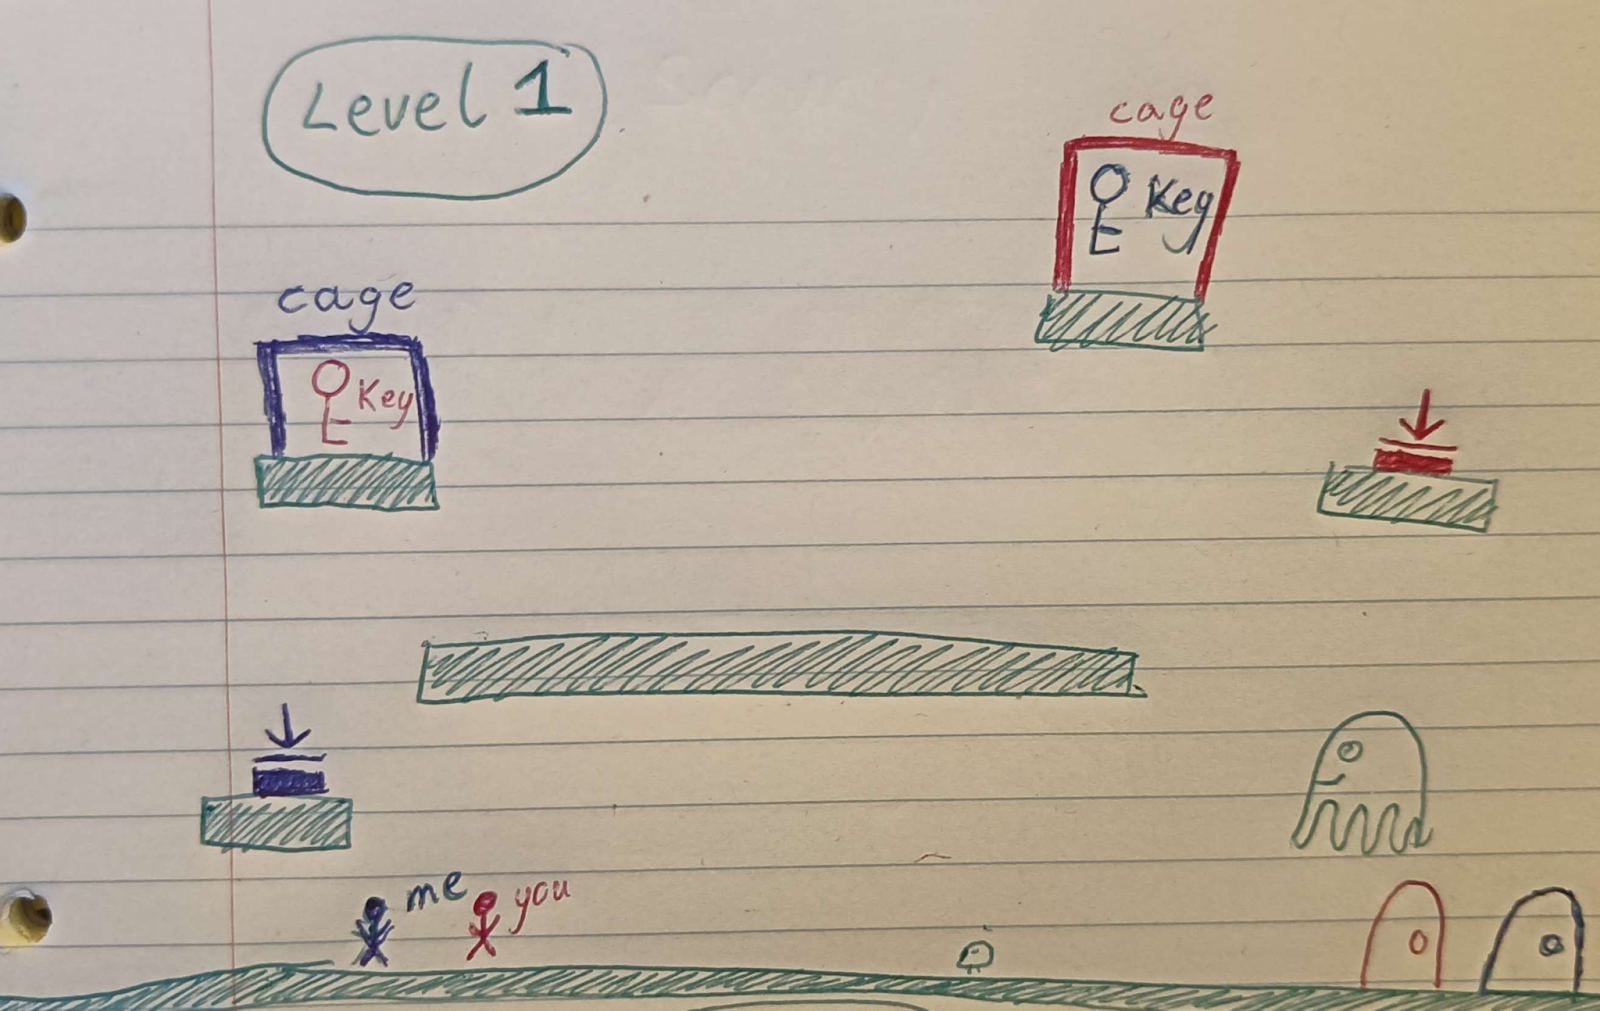 Level 1
cage
Key
cage
Key
me you